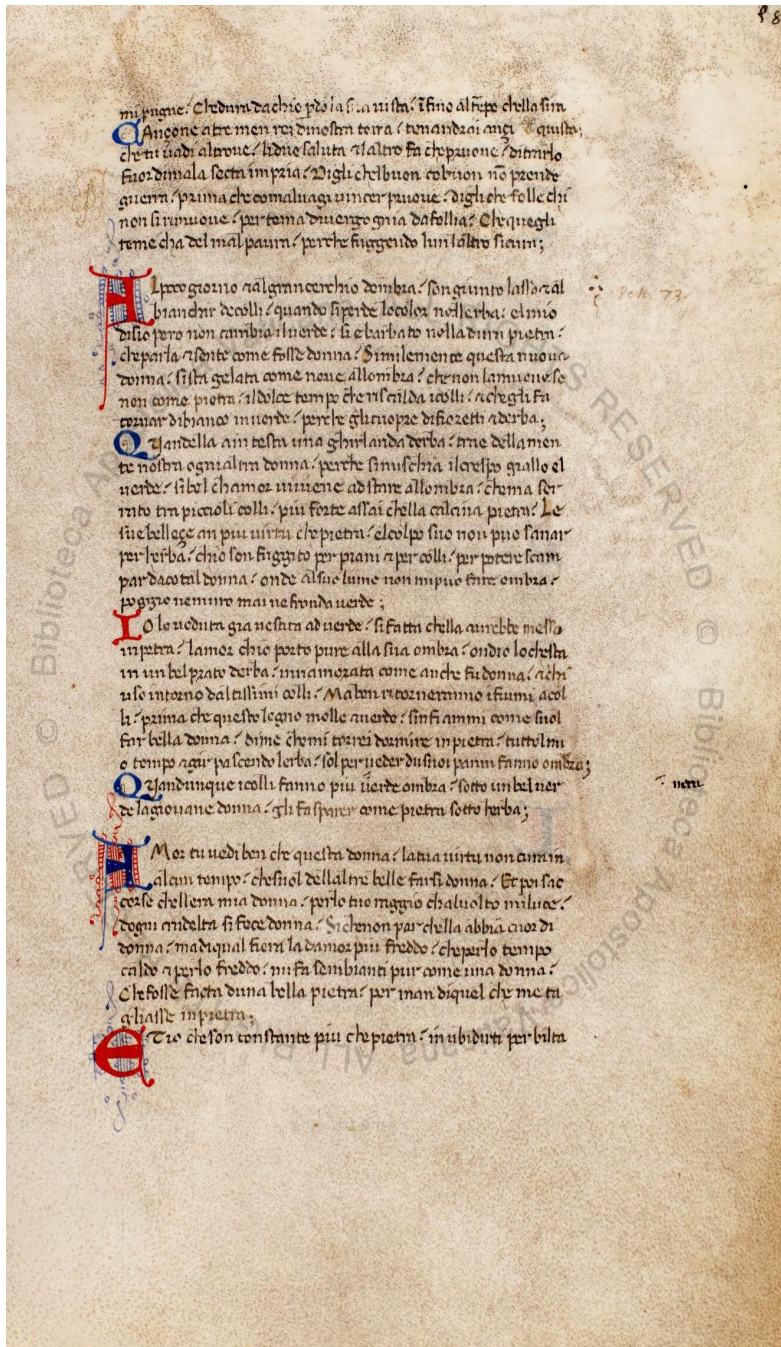 28
mi pugne. Chedura dachio pdo la sua uista. ĩfino al tẽpo chella sua
CAnçone a tre men rei dinostra terra. tenandrai ançi quista;
che tu uadi altroue. lidue saluta ⁊laltro fa chepruoue. ditrarlo
fuor dimala secta impria. Digli chelbuon colbuon nõ prende
guerra. prima che comaluagi uincer pruoue. digli che folle chi
non si rimuoue. per tema diuergo gnia da follia. Che quegli
teme cha del mal paura. perche fuggendo lun laltro sicura;
ALpoco giorno ⁊algran cerchio dombra. son giunto lasso ⁊al
bianchir de colli. quando si perde lo color nellerba. el mio
disio pero non cambia il uerde. si e barbato nella dura pietra.
che parla ⁊sente come fosse donna. Similemente questa nuoua
donna. si sta gelata come neue allombra. che non lamuoue se
non come pietra. il dolce tempo che riscalda icolli. ⁊che gli fa
tornar di bianco in uerde. perche gli cuopre di fioretti ⁊derba;
QUandella a in testa una ghirlanda derba. trae della men
te nostra ogni altra donna. perche si mischia il crespo giallo el
uerde. si bel chamor ui uiene ad stare allombra. che ma ser
rato tra piccioli colli. piu forte assai chella calcina pietra. Le
sue belleçe an piu uirtu che pietra. el colpo suo non puo sanar
per lerba. chio son fuggito per piani ⁊ per colli. per potere scam
par da cotal donna. onde al suo lume non mi puo fare ombra.
poggio ne muro mai ne fronda uerde;
IO lo ueduta gia uestita ad uerde. si fatta chella aurebbe messo
in pietra. lamor chio porto pure alla sua ombra. ondio lo chesta
in un bel prato derba. innamorata come anche fu donna. ⁊chi
uso intorno daltissimi colli. Ma ben ritorneranno ifiumi a col
li. prima che questo legno molle ⁊uerde. sinfiammi come suol
far bella donna. di me che mi torrei dormire in pietra. tutto il mi
o tempo ⁊gir pascendo lerba. sol per ueder du suoi panni fanno ombra;
QUandunque icolli fanno piu uerde ombra. sotto un bel uer
de la giouane donna. gli fa sparer come pietra sotto herba;
AMor tu uedi ben che questa donna. la tua uirtu non cura in
alcun tempo. che suol dellaltre belle farsi donna. Et poi sac
corse chellera mia donna. per lo tuo raggio chal uolto mi luce.
dogni crudelta si fece donna. Siche non par chella abbia cuor di
donna. ma di qual fiera la damor piu freddo. che per lo tempo
caldo ⁊ per lo freddo. mi fa sembianti pur come una donna.
Che fosse facta duna bella pietra. per man di quel che me ta
gliasse in pietra;
ETio che son constante piu che pietra. in ubidirti per bilta